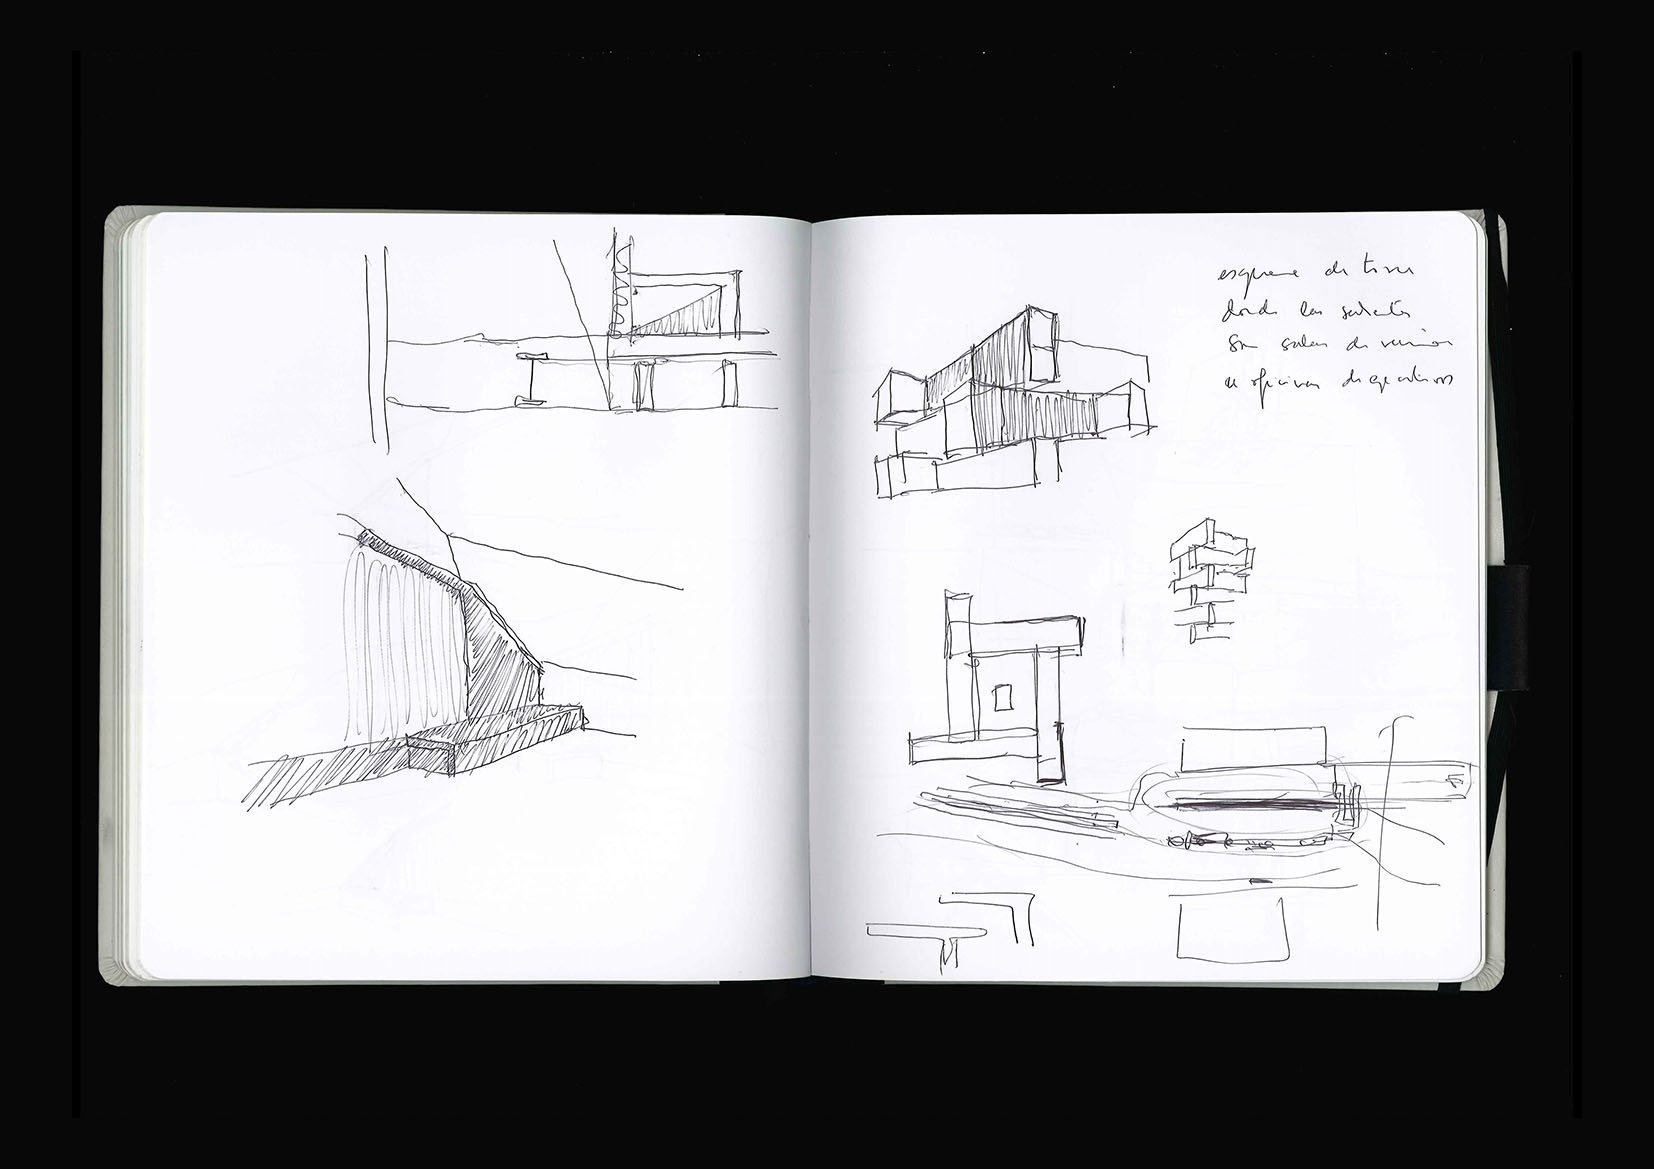 esquema de torre
donde los salientes
son salas de reunion
u oficinas de ejecutivos